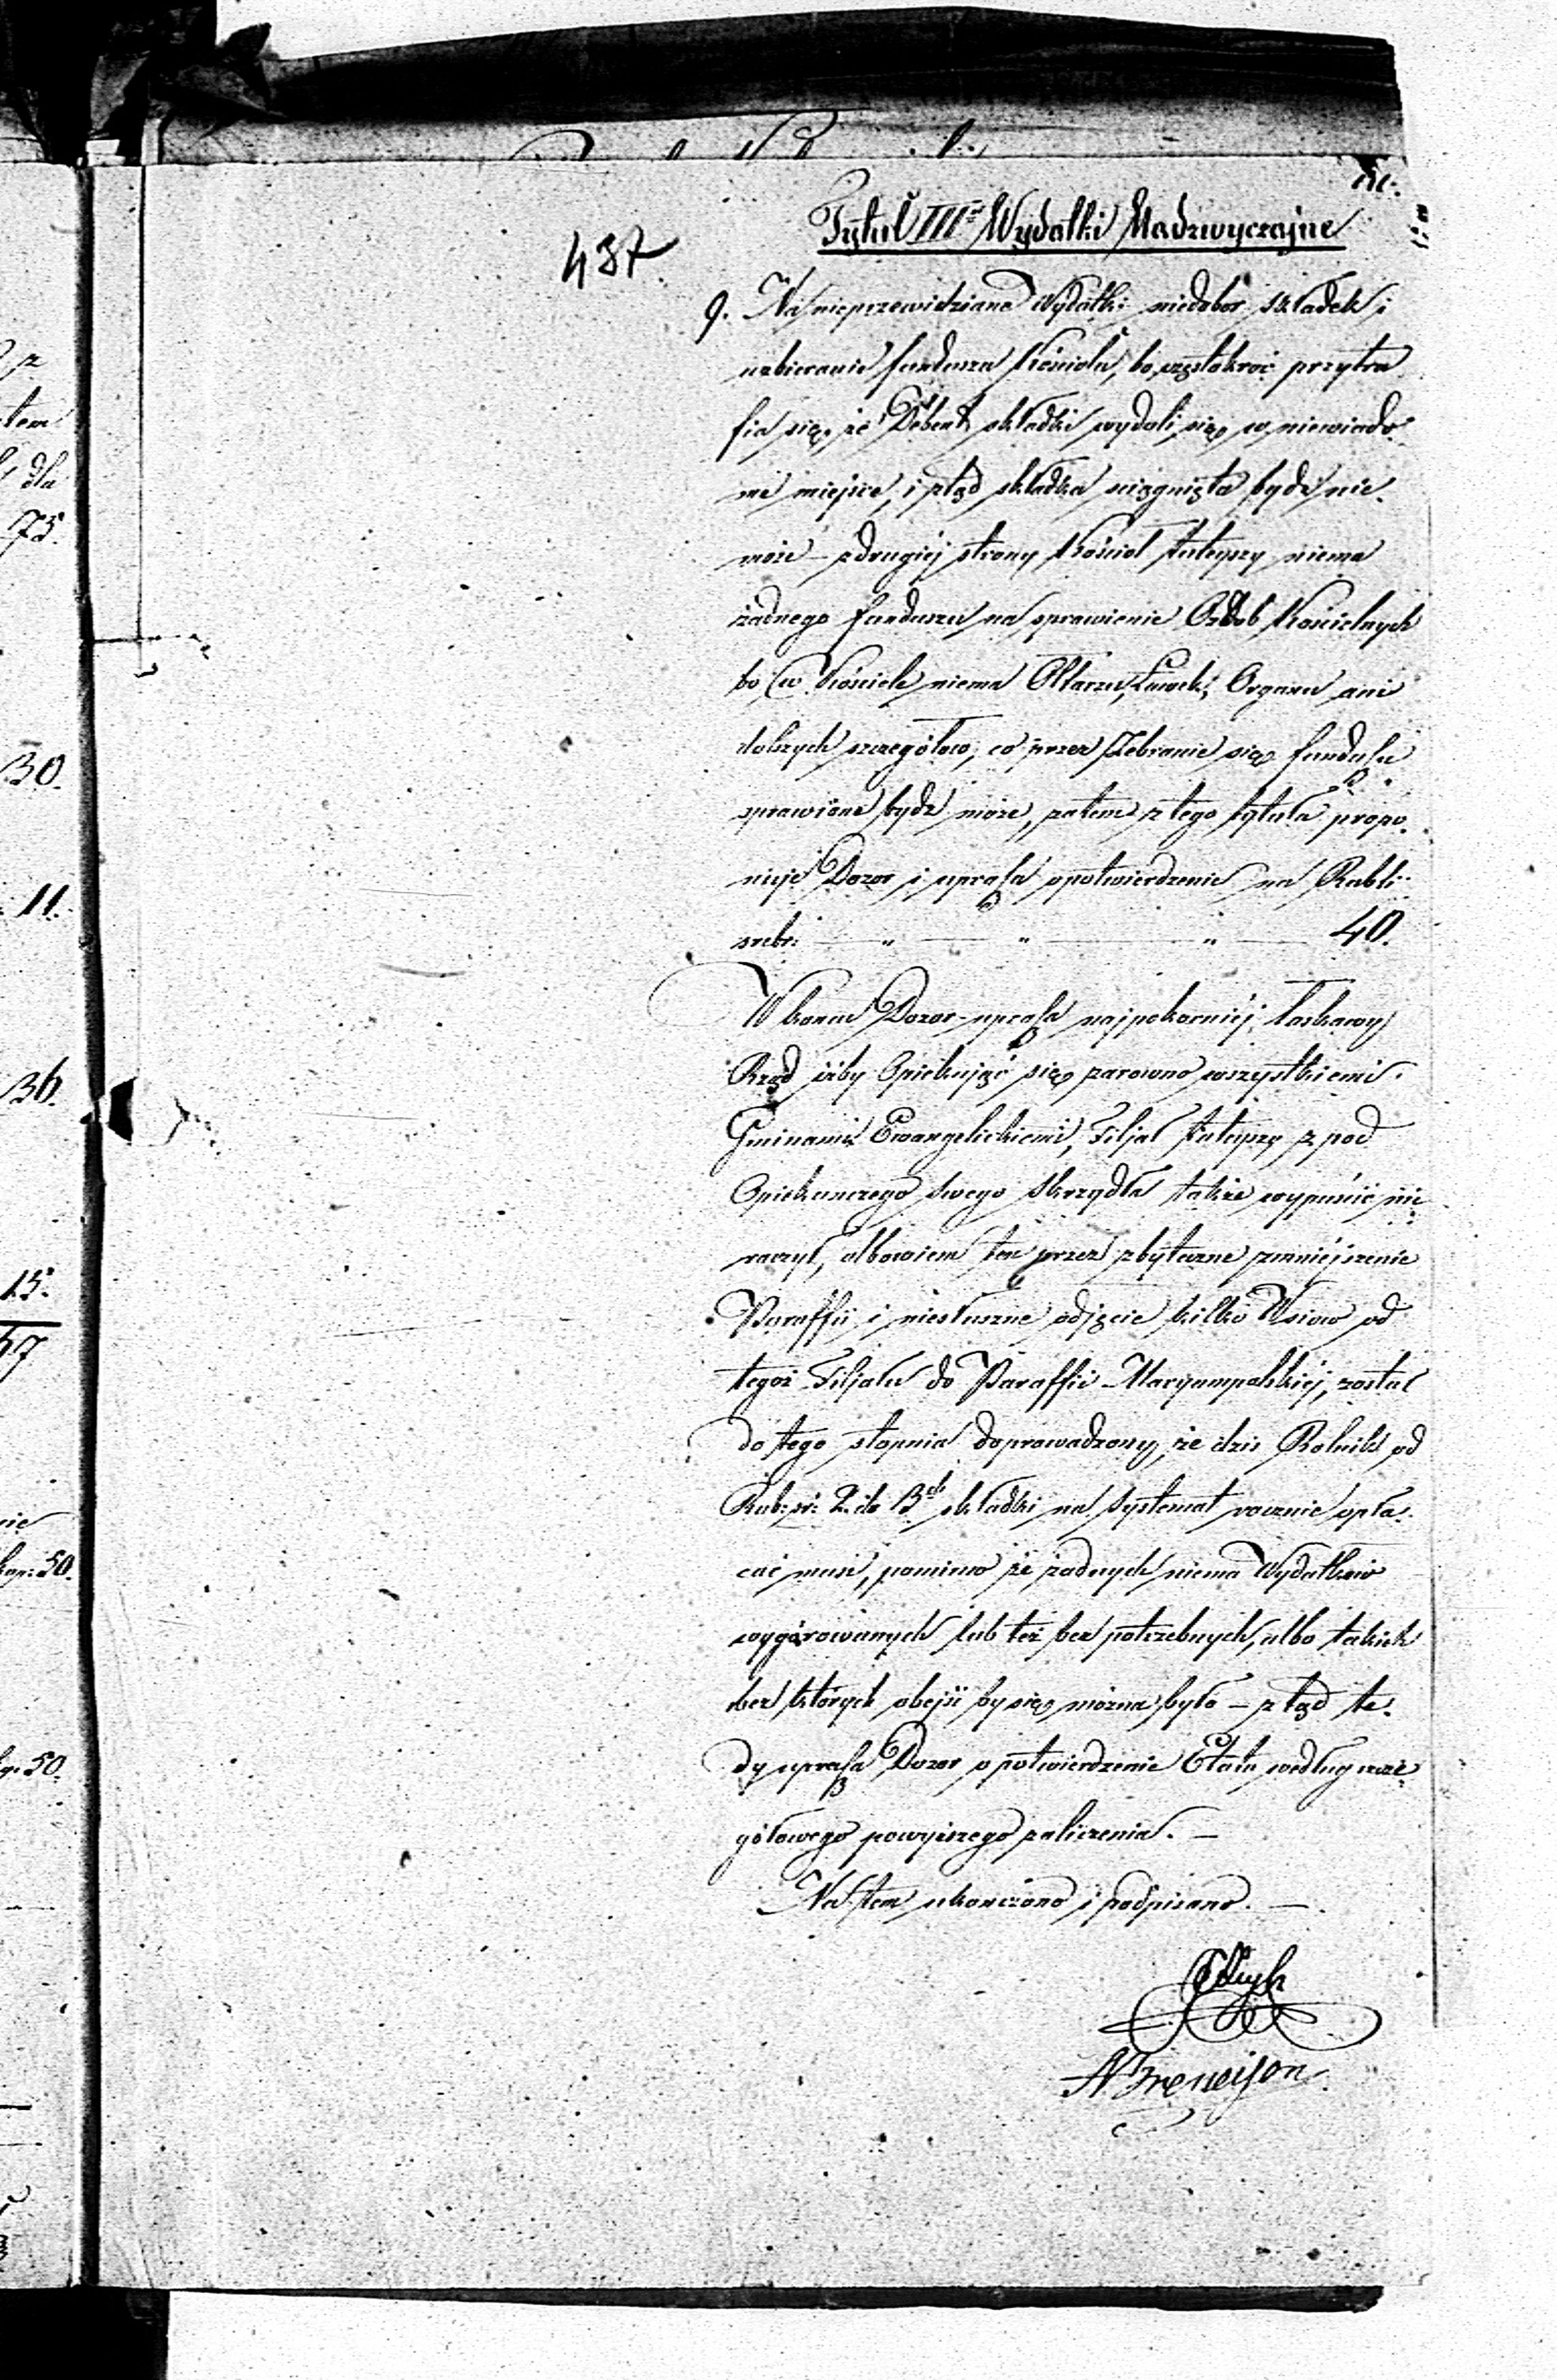 437
Tytuł III. Wydatki Nadzwyczajne
9. Na nieprzewidziane Wydatki niedobor składek i
uzbieranie funduszu Kościoła, bo częstokroć przytra
fia się, że Debent składki wydali się w niewiado-
me miejsce, i ztąd składka sciągnięta bydź nie-
może – zdrugiéj strony Kościoł tuteyszy niema
żadnego funduszu na sprawienie Ozdob Kościelnych
bo w Kościele niema Ołtarzu, Ławek, Organu ani
dobrych szczegółow, co przez Zebranie się funduszu
sprawione bydź może, zatem z tego tytułu propo-
nuje Dozor i uprasza o potwierdzenie na Rubli
srebr: — " — " — " — 40.
W koncu Dozor uprasza najpokorniéj, łaskawy
Rząd iżby Opiekując się zarowno wszystkiemi
Gminami Ewangelickiemi, Filjał tuteyszy z pod
Opiekunczego swego skrzydła także wypuścić nie
raczył, albowiem ten przez zbyteczne zmniéjszenie
Paraffii i niesłuszne odjęcie kilku Wsiow od
tegoż Filjału do Paraffii Maryampolskiéj, został
do tego stopnia doprowadzony, że dziś Rolnik od
Rub: sr: 2. do 3ch składki na Systemat rocznie opła-
cać musi, pomimo że żadnych niema Wydatkow
wygórowanych lub też bez potrzebnych, albo takich
bez których obejść by się można było – z tąd te-
dy uprasza Dozor o potwierdzenie Etatu według szcze
gółowego powyższego zaliczenia. —
Na tem ukonczono i podpisano. —
75.
30.
11.
36.
15.
57
kop: 50.
50.